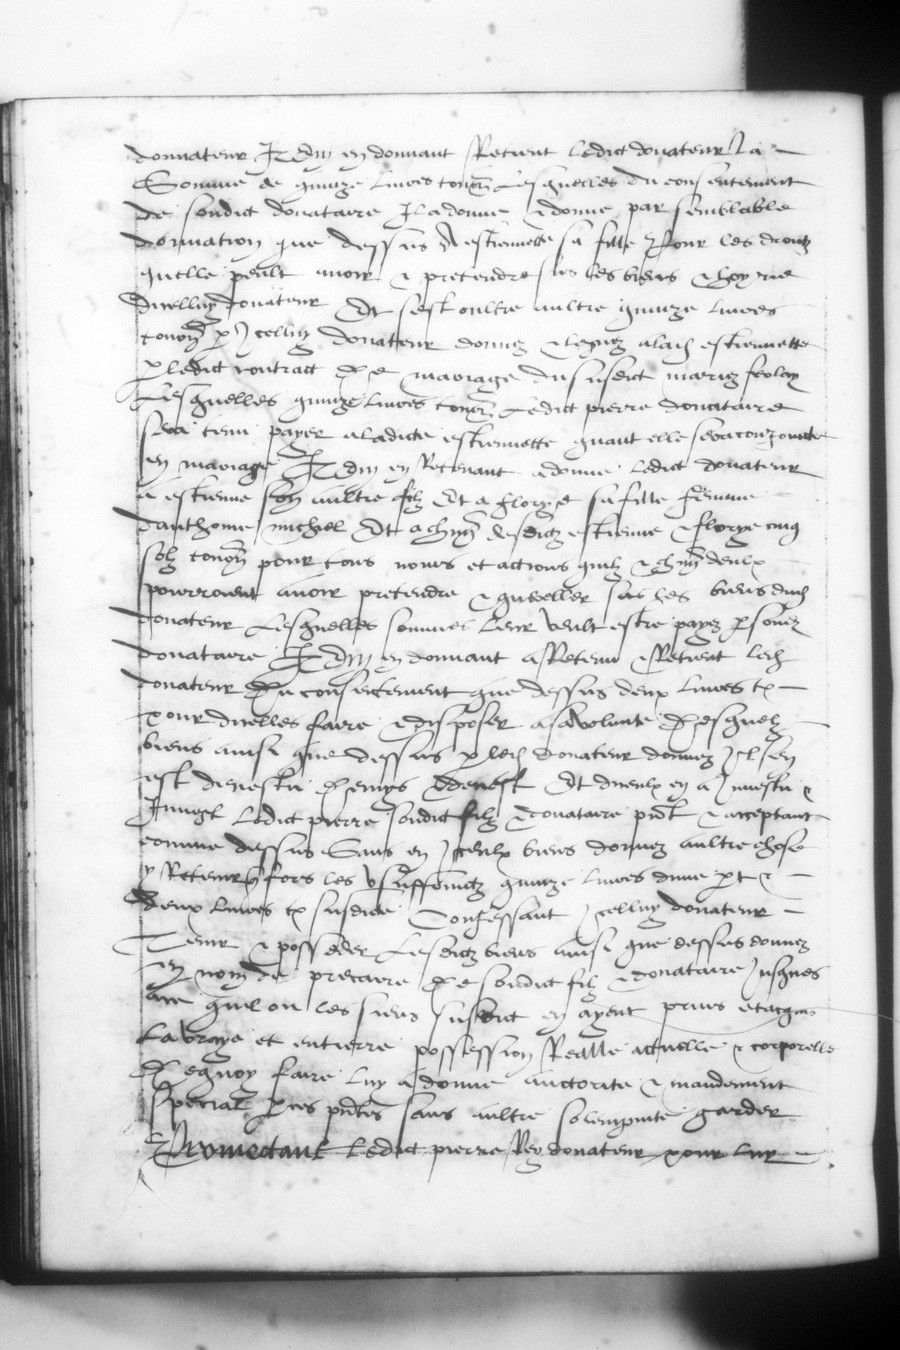 donnateur Item en donnant Retient ledict donateur la
Somme de quinze livres tourn Lesquelles du consentement
de sondict donataire Il a donne & donne par semblable
donnation que dessus A estiennette sa fille Pour les droictz
quelle peult avoir & pretendre sus les biens & hoyrie
dicelluy donateur Et sest oultre aultre quinze livres
tourn p Icelluy donateur donnez & leguez a ladi estiennette
p ledict contract de mariage du susdict
Lesquelles quinze livres tourn Ledict pierre donataire
sera tenu payer a ladicte estiennette quant elle sera
en mariage Item en Retenant a donne ledict donateur
a estienne son aultre filz Et a florye sa fille femme
danthoine michel Et a chun desdictz estienne & florye cinq
solz tourn pour tous noms et actions quilz & chun deulx
pourroient avoir pretendre & quereller sus les biens dudi
donateur Lesquelles sommes leur veult estre payez p sondi
donataire Item en donnant a Retenu & Retient ledi
donateur du consentement que dessus deux livres tz
pour dicelles faire & disposer a sa volunte Desquelz
biens ainsi que dessus p ledi donateur donnez Il sen
est divestu demys & devest Et diceulx en a Investu &
Invest Ledict pierre sondict filz & donataire pnt & acceptant
comme dessus Sans en Iceulx biens donnez aultre chose
y Retenir fors les quinze livres dune pt &
deux livres tz susdictz Confessant Icelluy donateur
Tenir & posseder Lesdictz biens ainsi que dessus donnez
en nom de precaire de sondict filz & donataire Jusques
ace quil ou les siens susdict en ayent prins et acquis
La vraye et entierre possession Realle actuelle & corporelle
De quoy faire luy a donne auctorite & mandement
special p ces pntes sans aultre solempnite garder
Promectant ledict pierre Rey donateur pour luy